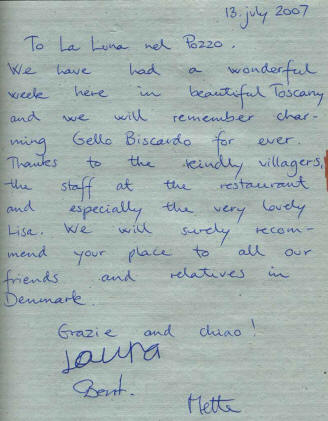 13. july 2007
To La Luna nel Pozzo.
We have had a wonderful
week here in beautiful Toscany
and we will remember char-
ming Gello Biscardo for ever.
Thanks to the kindly villagers,
the staff at the restaurant
and especially the very lovely
Lisa. We will surely recom-
mend your place to all our
friends and relatives in
Denmark.
Grazie and chiao!
Laura
Bent.
Mette